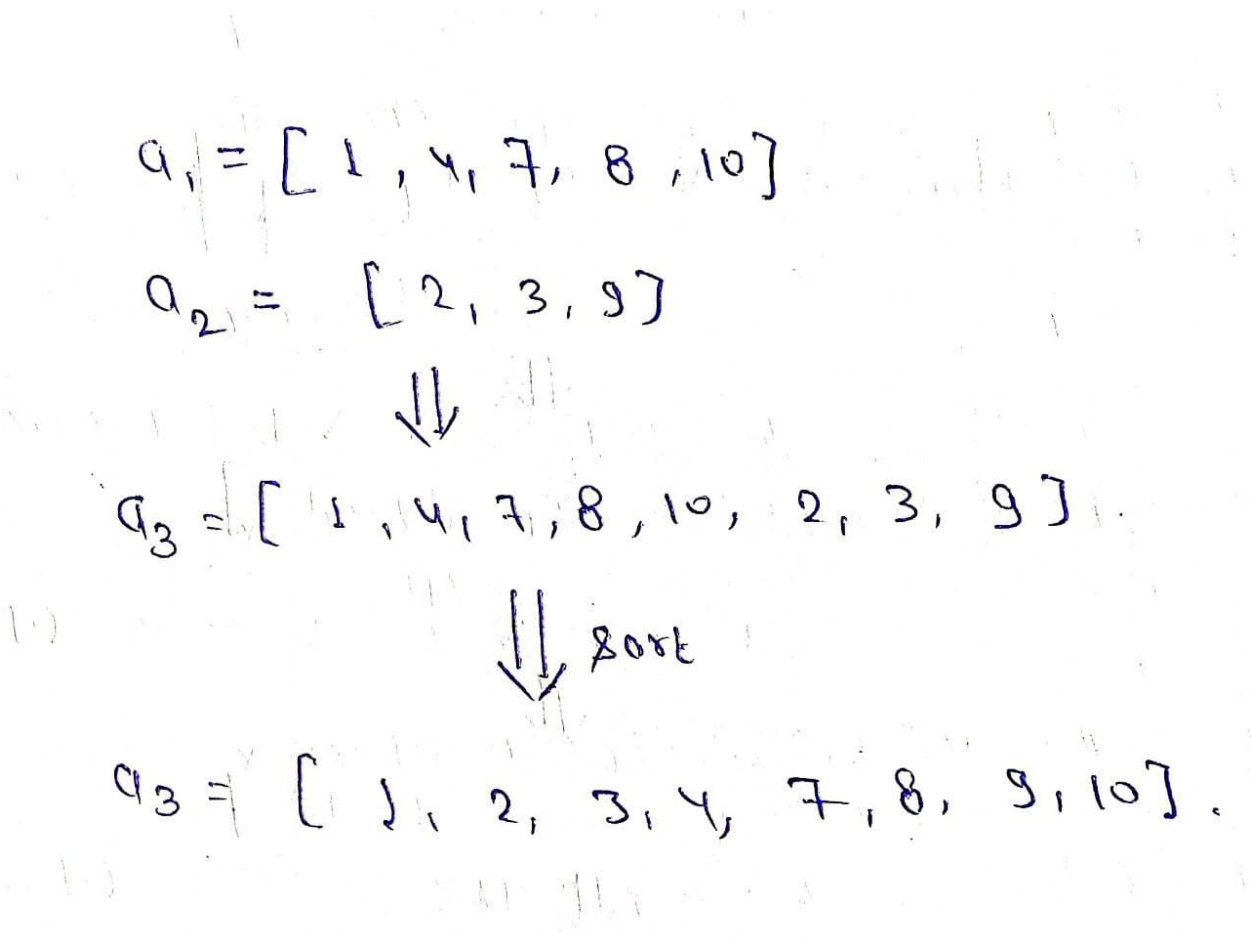 a₁ = [ 1, 4, 7, 8, 10]
a₂ = [ 2, 3, 9]
⇓
a₃ = [ 1, 4, 7, 8, 10, 2, 3, 9].
⇓ sort
a₃ = [ 1, 2, 3, 4, 7, 8, 9, 10].